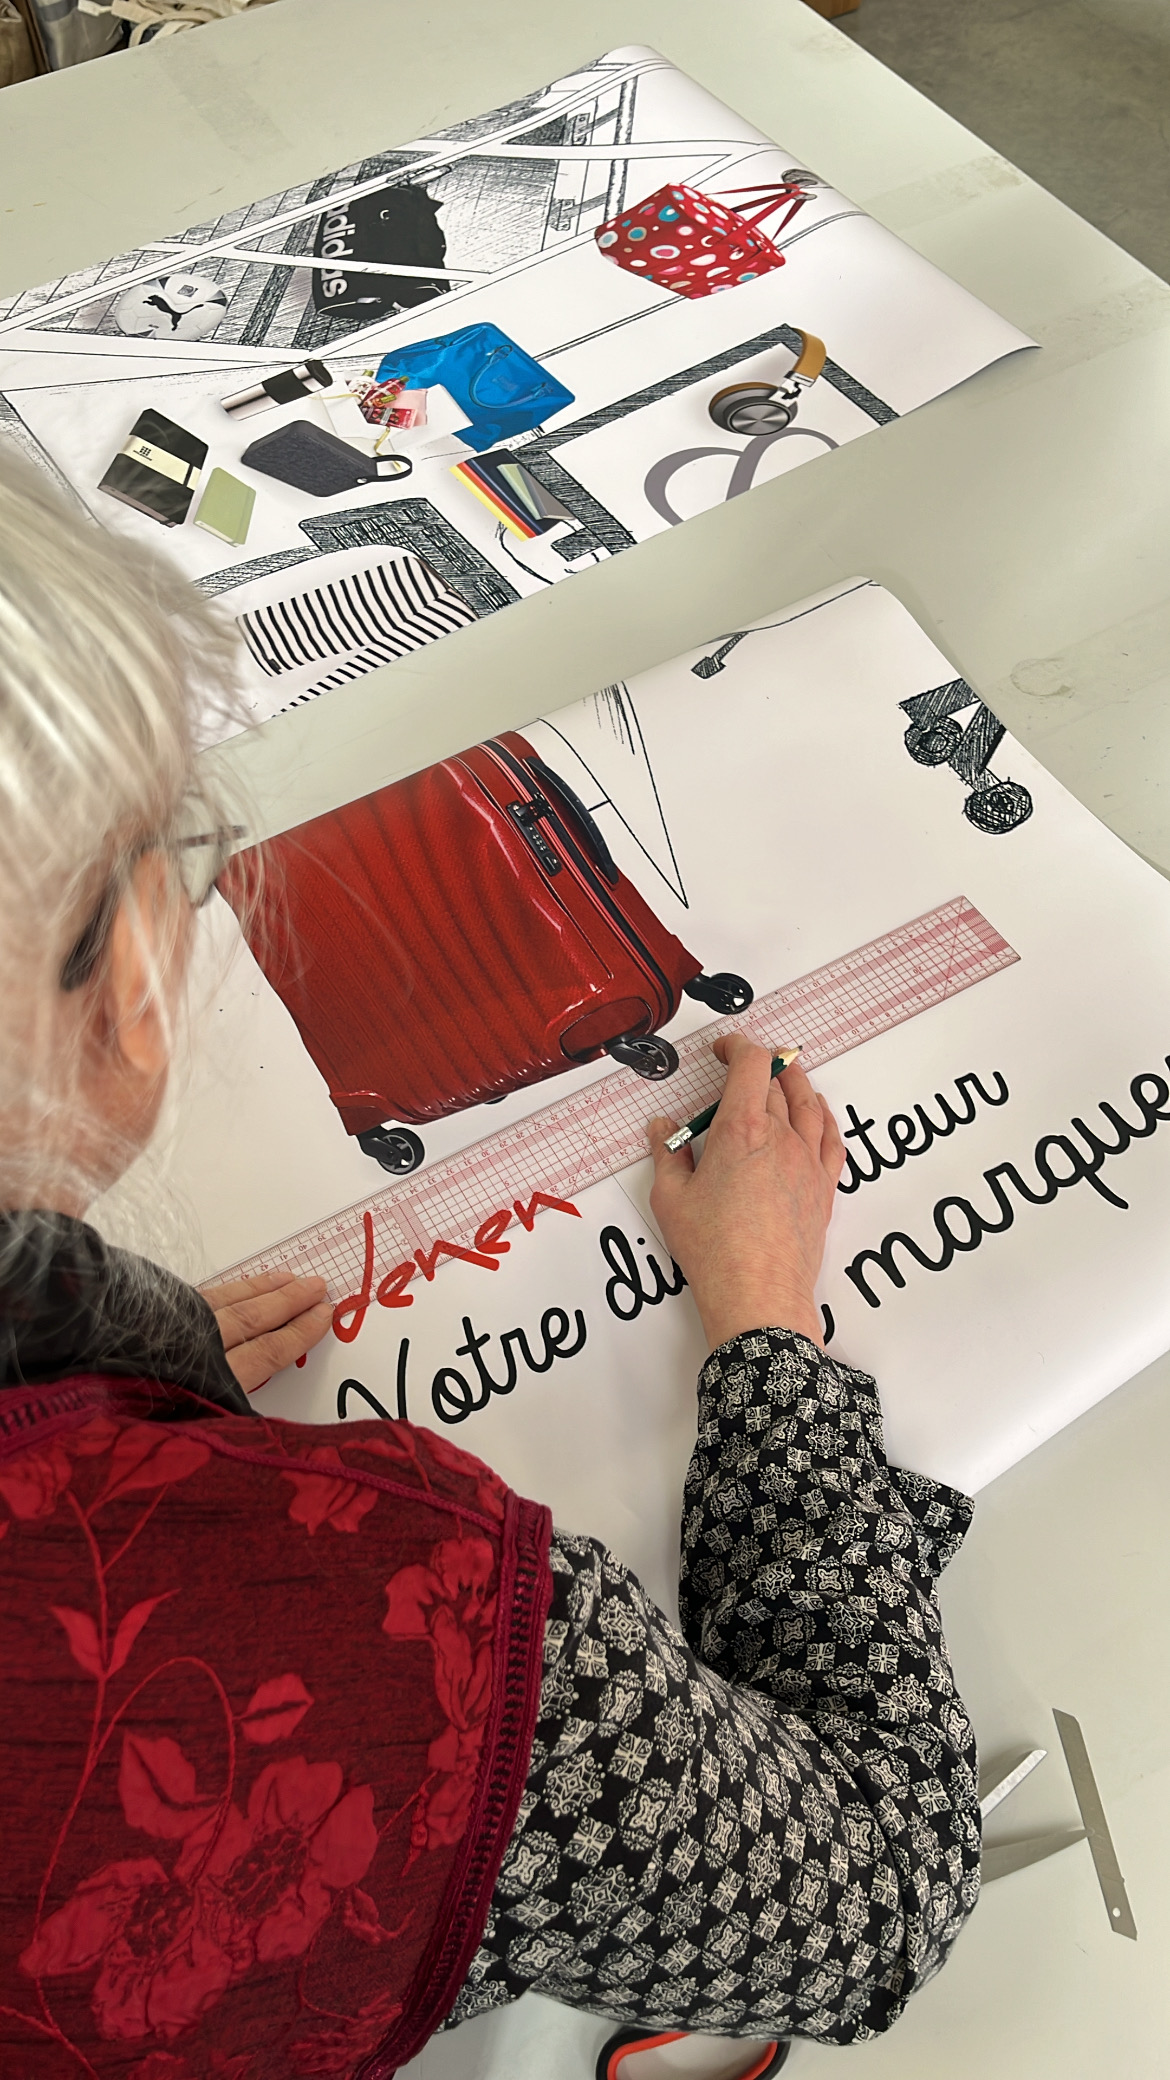 adidas
denen
Votre di
ateur
marque